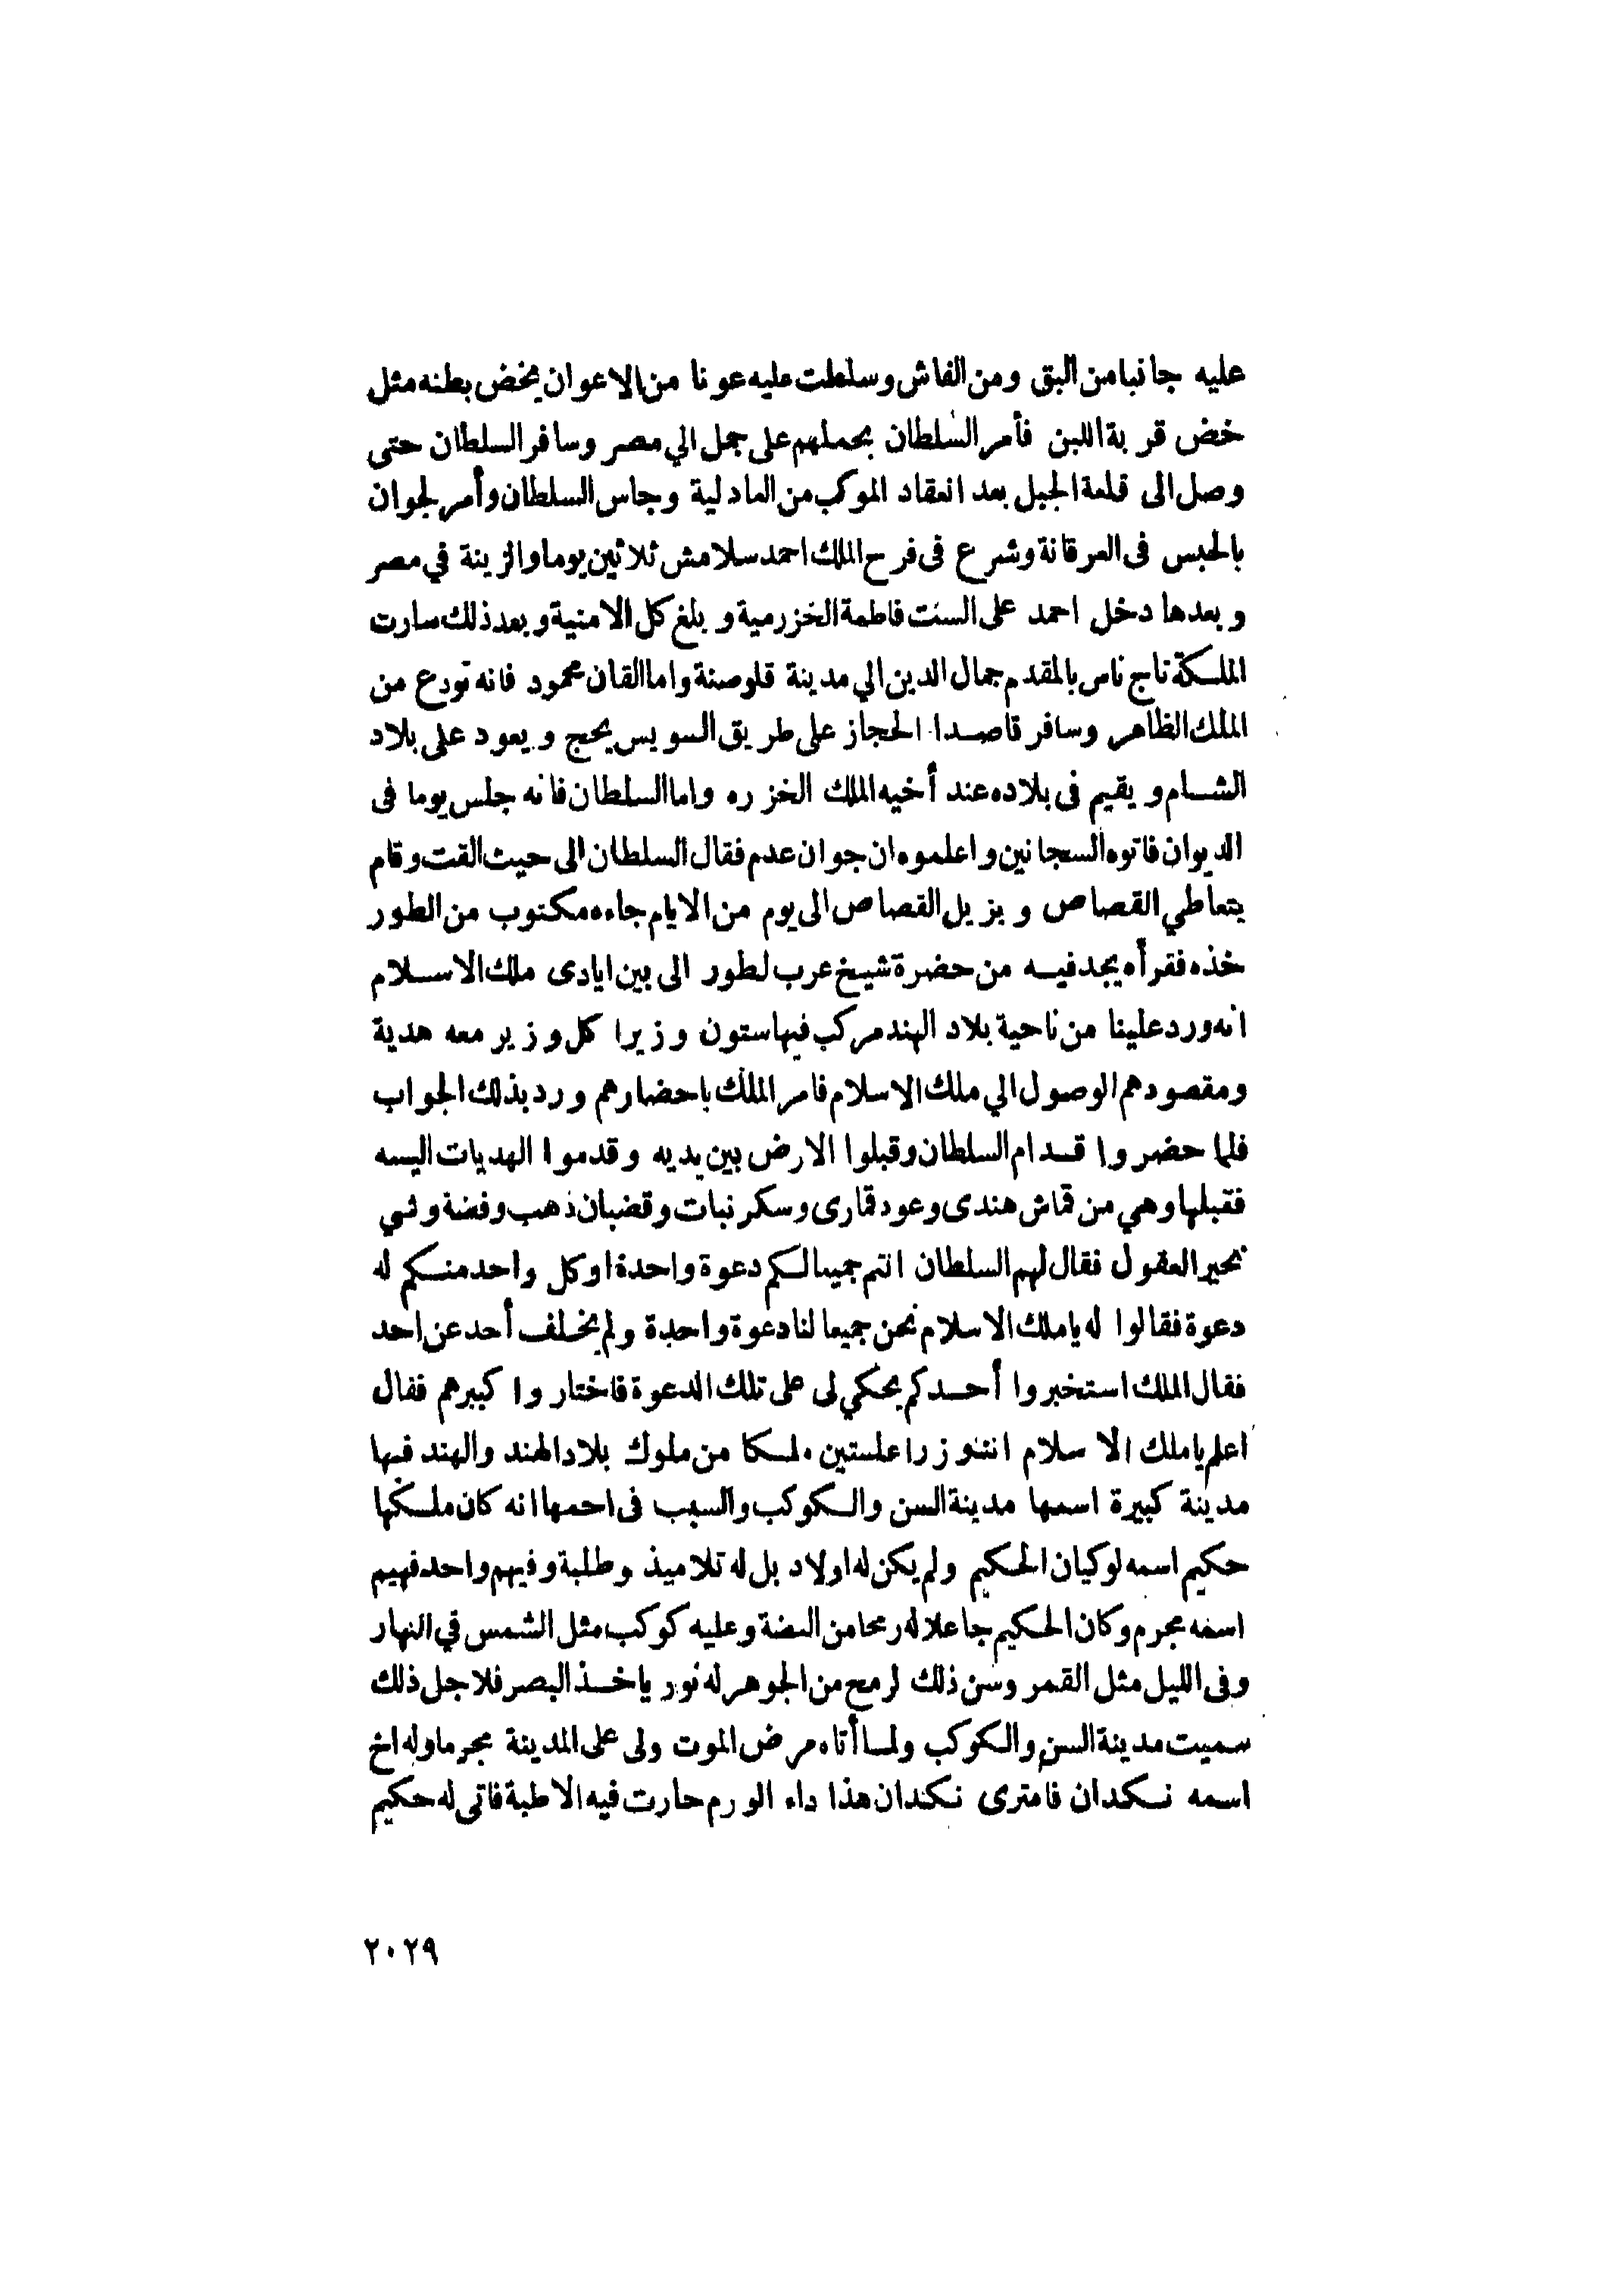 عليه جانبا من البق ومن الفاش وسلطت عليه عونا من الاعوان يخض بطنه مثل
خض قربة اللبن فأمر السلطان بحملهم على جمل الي مصر وسافر السلطان حتى
وصل الى قلعة الجبل بعد انعقاد الموكب من العادلية وجاس السلطان وأمر لجوان
بالحبس فى العرقانة وشرع فى فرح الملك احمد سلامش ثلاثين يوما والزينة في مصر
وبعدها دخل احمد على الست فاطمة الخزرمية وبلغ كل الامنية وبعد ذلك سارت
الملكة تاج ناس بالمقدم جمال الدين الي مدينة قلوصنة واما القان محمود فانه تودع من
الملك الظاهر وسافر قاصدا الحجاز على طريق السويس يحج ويعود على بلاد
الشام ويقيم فى بلاده عند أخيه الملك الخزره واما السلطان فانه جلس يوما فى
الديوان فاتوه السجانين واعلموه ان جوان عدم فقال السلطان الى حيث القت وقام
يتعاطي القصاص ويزيل القصاص الى يوم من الايام جاءه مكتوب من الطور
خذه فقرأه يجد فيه من حضرة شيخ عرب لطور الى بين ايادى ملك الاسلام
انه ورد علينا من ناحية بلاد الهند مركب فيها ستون وزيرا كل وزير معه هدية
ومقصودهم الوصول الي ملك الاسلام فامر الملك باحضارهم ورد بذلك الجواب
فلما حضروا قدام السلطان وقبلوا الارض بين يديه وقدموا الهديات اليه
فقبلها وهي من قماش هندى وعود قمارى وسكر نبات وقضبان ذهب وفضة وشي
يحير العقول فقال لهم السلطان انتم جميعا لكم دعوة واحدة او كل واحد منكم له
دعوة فقالوا له ياملك الاسلام نحن جميعا لنا دعوة واحدة ولم يخلف أحد عن احد
فقال الملك استخبروا أحدكم يحكي لى على تلك الدعوة فاختاروا كبيرهم فقال
اعلم ياملك الاسلام اننا وزرا علستين ملكا من ملوك بلاد الهند والهند فيها
مدينة كبيرة اسمها مدينة السن والكوكب والسبب فى احمها انه كان ملكها
حكيم اسمه لوكيان الحكيم ولم يكن له اولاد بل له تلاميذ وطلبة وفيهم واحد فهيم
اسمه مجرم وكان الحكيم جاعلا له رمحا من الفضة وعليه كوكب مثل الشمس في النهار
وفى الليل مثل القمر وسن ذلك لرمح من الجوهر له نور ياخذ البصر فلاجل ذلك
سميت مدينة السن والكوكب ولما أتاه مرض الموت ولى على المدينة مجرما وله اخ
اسمه نكدان فامترى نكدان هذا داء الورم حارت فيه الاطبة فاتى له حكيم
٢٠٢٩